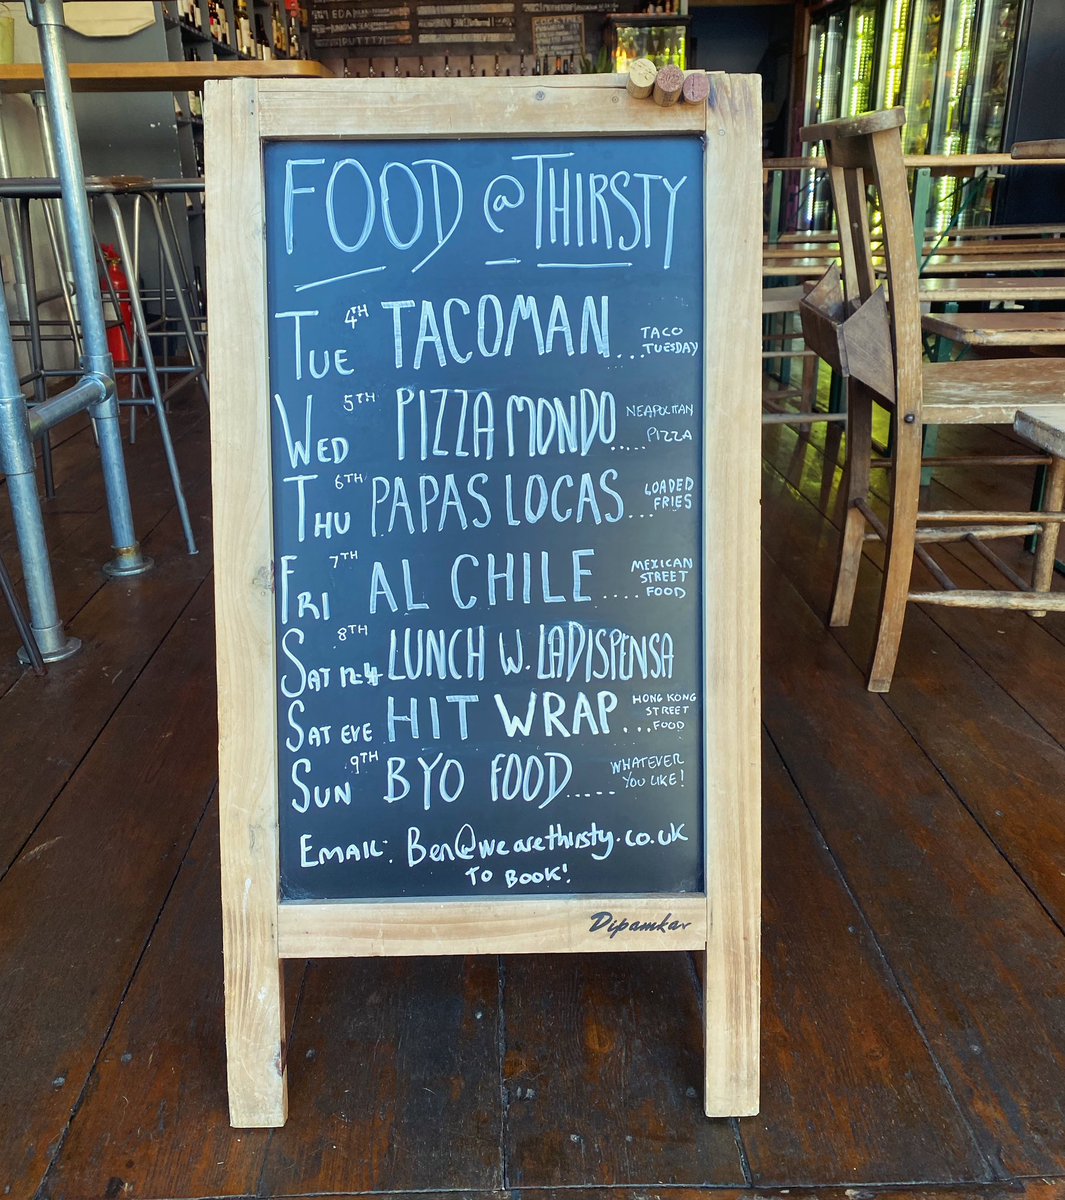 FOOD @ THIRSTY
TUE 4TH TACOMAN... TACO TUESDAY
WED 5TH PIZZA MONDO..... NEAPOLITAN PIZZA
THU 6TH PAPAS LOCAS... LOADED FRIES
FRI 7TH AL CHILE..... MEXICAN STREET FOOD
SAT 8TH 12-4 LUNCH W. LADISPENSA
SAT EVE HIT WRAP... HONG KONG STREET FOOD
SUN 9TH BYO FOOD..... WHATEVER YOU LIKE!
EMAIL: Ben@wearethirsty.co.uk
TO BOOK!
Dipamkar